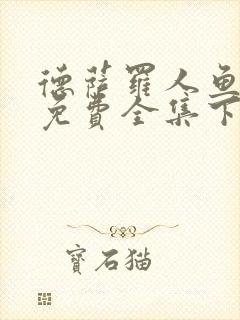 德薩罗人鱼
免費全集下
寶石猫